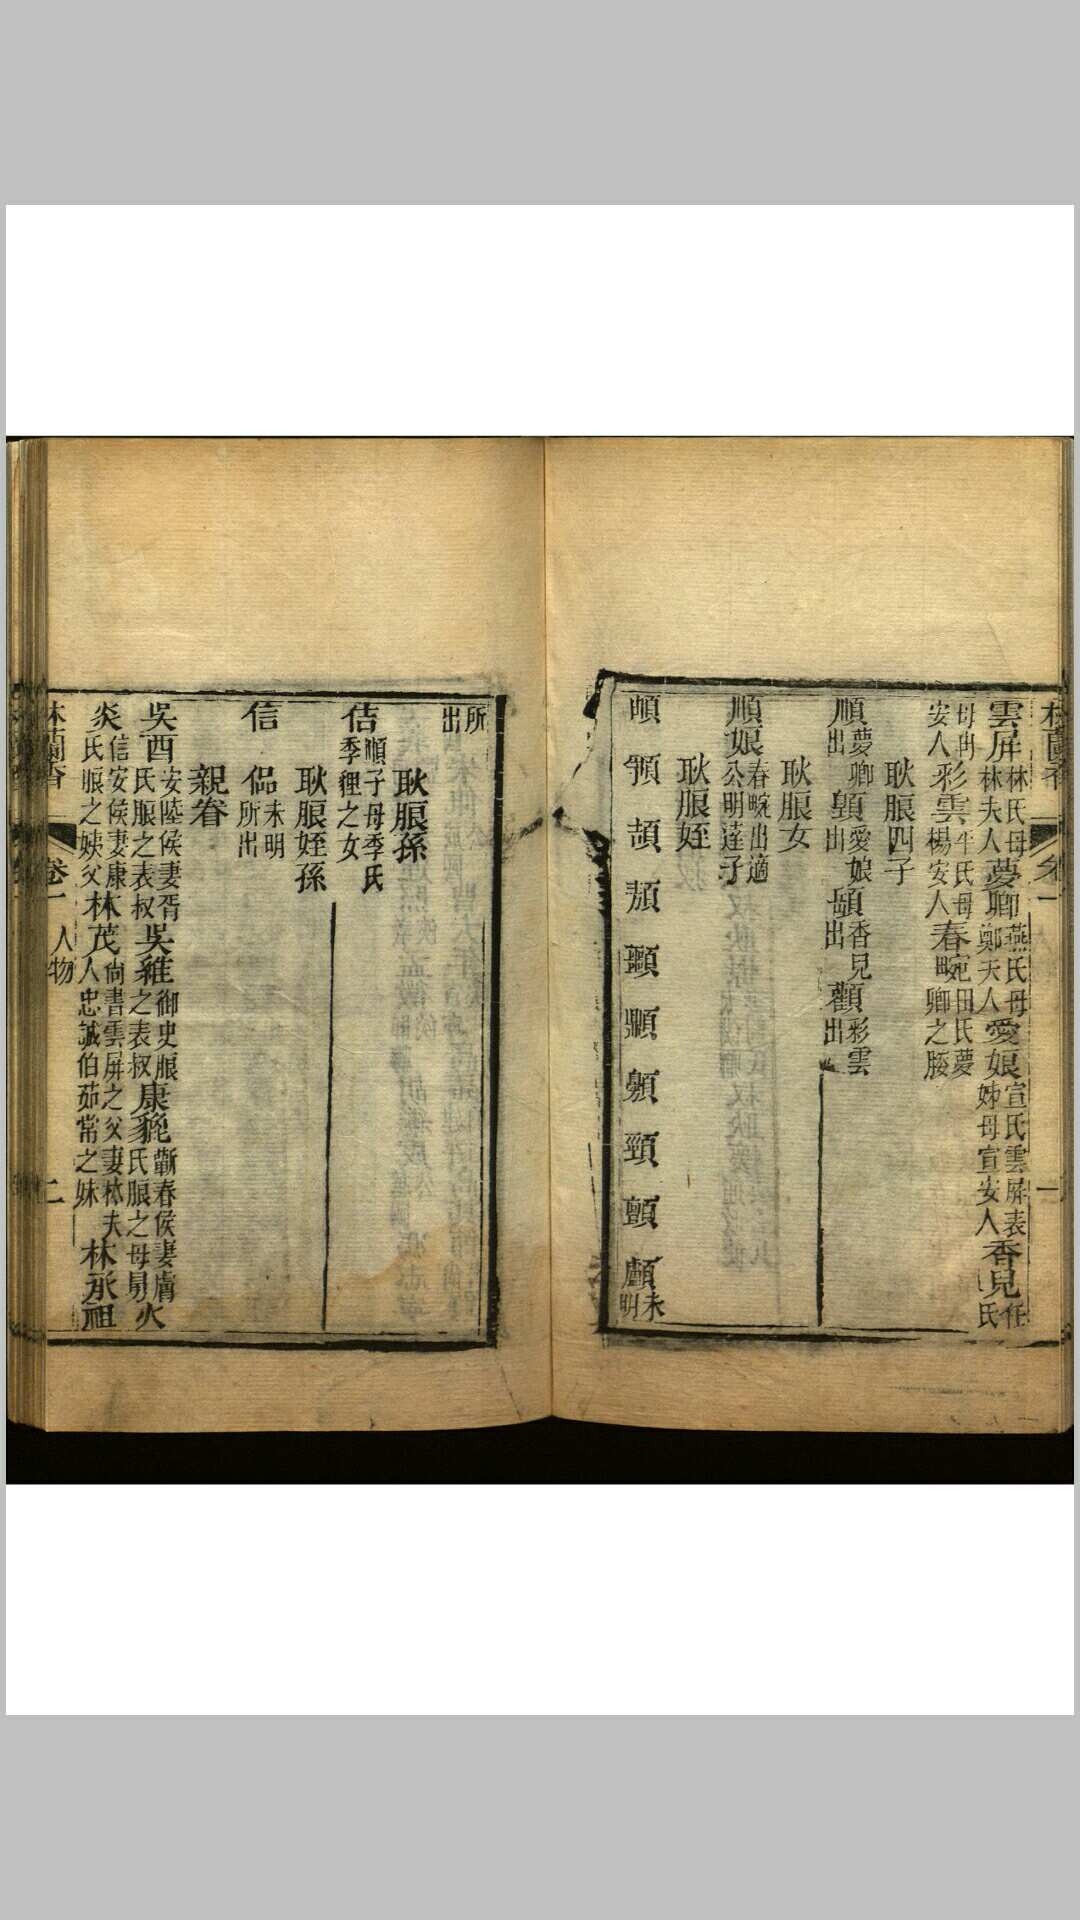 雲屏林氏母林夫人夢卿燕氏母鄭夫人愛娘宣氏雲屏表姊母宣安人香兒任氏
母冉安人彩雲平氏母楊安人春畹田氏夢卿之媵
耿朖四子
順夢卿出顗愛娘出 香兒出 彩雲出
耿朖女
順娘春畹出適公明達子
耿朖姪
未明
所出
耿朖孫
佶順子母季氏季狸之女
耿朖姪孫
信 侣未明所出
親眷
吳酉安陸侯妻胥氏朖之表叔吳維御史朖之表叔康 蘄春侯妻膚氏朖之母舅火
炎信安侯妻康氏朖之姨父林茂尚書雲屏之父妻林夫人忠誠伯茹常之妹林承祖
林蘭香
卷一
人物
二